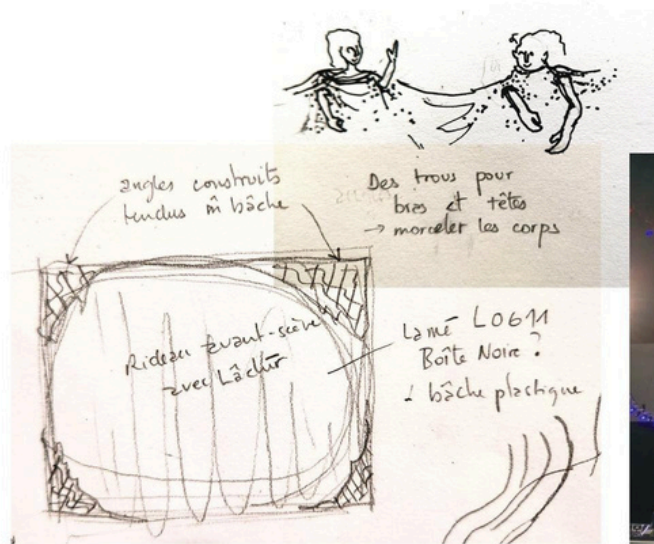 angles construits
tendus m̂ bâche
Des trous pour
bras et têtes
→ morceler les corps
Rideau avant-scène
avec Lâcher
Lamé L0611
Boîte Noire ?
bâche plastique